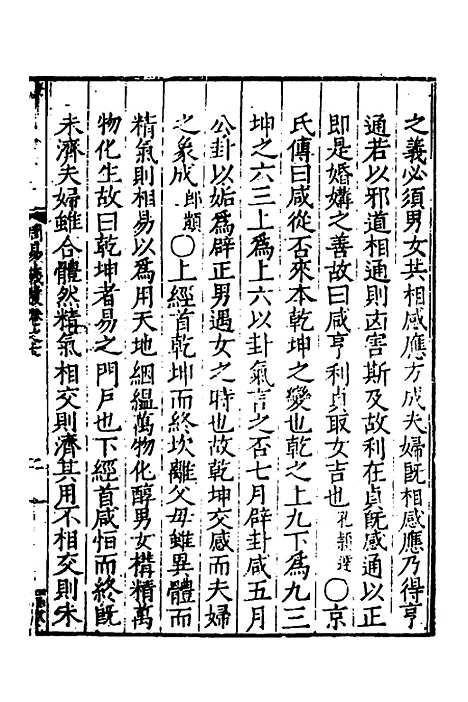 之義必須男女共相感應方成夫婦旣相感應乃得亨
通若以邪道相通則凶害斯及故利在貞旣感通以正
卽是婚媾之善故曰咸亨利貞取女吉也孔穎達○京
氏傳曰咸從否來本乾坤之變也乾之上九下爲九三
坤之六三上爲上六以卦氣言之否七月辟卦咸五月
公卦以姤爲辟正男遇女之時也故乾坤交感而夫婦
之象成郎顗○上經首乾坤而終坎離父母雖異體而
精氣則相易以爲用天地絪縕萬物化醇男女構精萬
物化生故曰乾坤者易之門戶也下經首咸恒而終旣
未濟夫婦雖合體然精氣相交則濟其用不相交則未